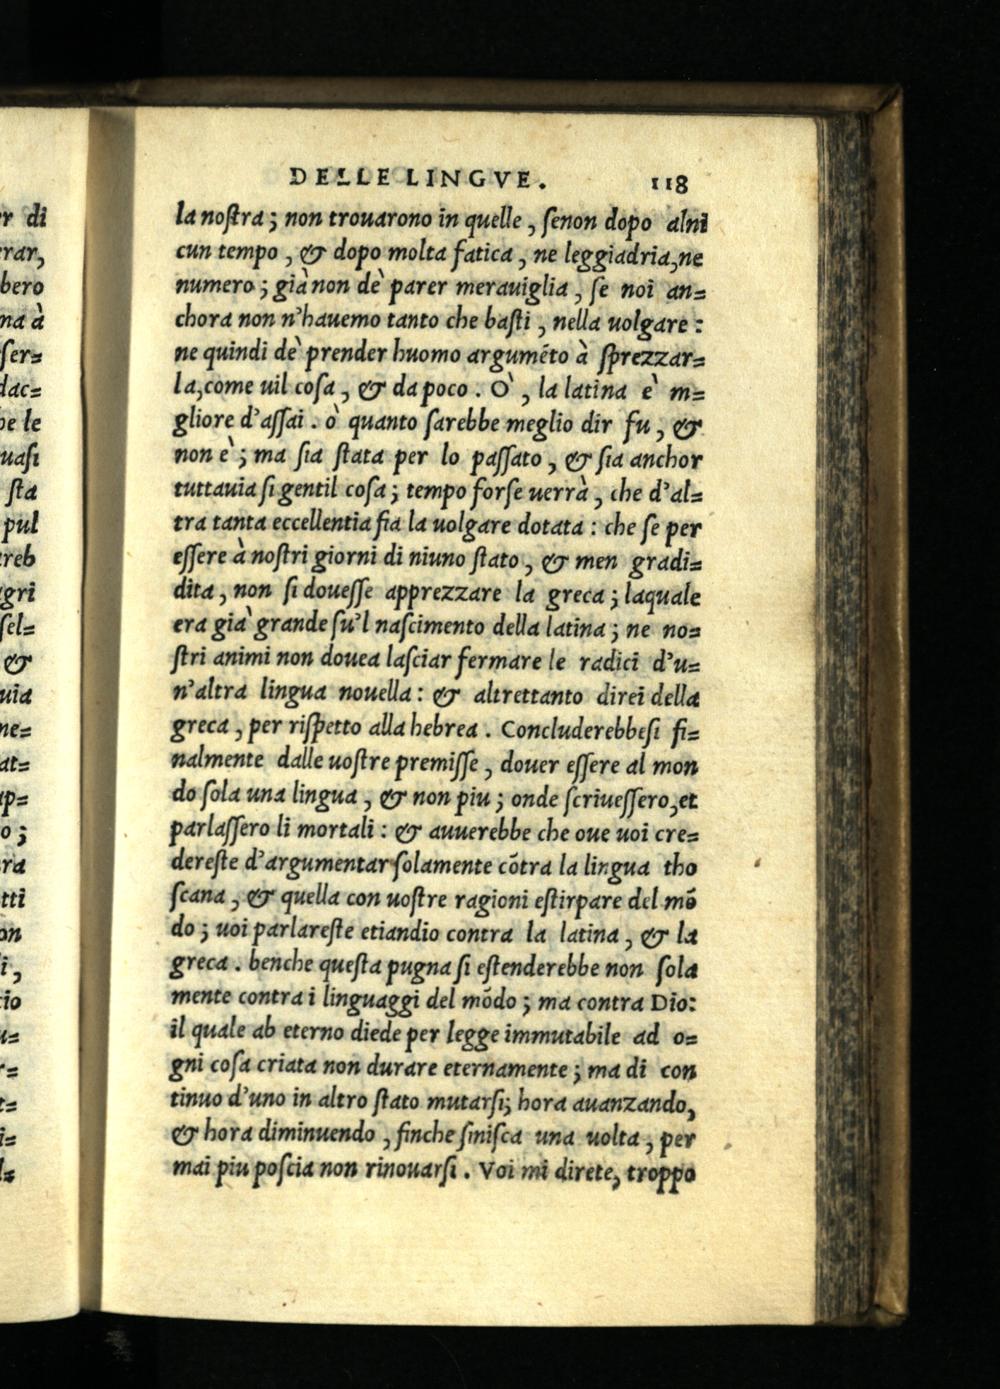 DELLE LINGVE. 118
la noſtra ; non trouarono in quelle , ſenon dopo alni
cun tempo , & dopo molta fatica , ne leggiadria,ne
numero ; già non dè parer merauiglia , ſe noi an=
chora non n'hauemo tanto che baſti , nella uolgare :
ne quindi dè prender huomo argumẽto à ſprezzar=
la,come uil coſa , & da poco . O' , la latina è m=
gliore d'aſſai . ò quanto ſarebbe meglio dir fu , &
non è ; ma ſia ſtata per lo paſſato , & ſia anchor
tuttauia ſi gentil coſa ; tempo forſe uerrà , che d'al=
tra tanta eccellentia fia la uolgare dotata : che ſe per
eſſere à noſtri giorni di niuno ſtato , & men gradi=
dita , non ſi doueſſe apprezzare la greca ; laquale
era già grande ſu'l naſcimento della latina ; ne no=
ſtri animi non douea laſciar fermare le radici d'u=
n'altra lingua nouella : & altrettanto direi della
greca , per riſpetto alla hebrea . Concluderebbeſi fi=
nalmente dalle uoſtre premiſſe , douer eſſere al mon
do ſola una lingua , & non piu ; onde ſcriueſſero,et
parlaſſero li mortali : & auuerebbe che oue uoi cre=
dereſte d'argumentar ſolamente cõtra la lingua tho
ſcana , & quella con uoſtre ragioni eſtirpare del mõ
do ; uoi parlareſte etiandio contra la latina , & la
greca . benche queſta pugna ſi eſtenderebbe non ſola
mente contra i linguaggi del mõdo ; ma contra Dio:
il quale ab eterno diede per legge immutabile ad o=
gni coſa criata non durare eternamente ; ma di con
tinuo d'uno in altro ſtato mutarſi; hora auanzando,
& hora diminuendo , finche finiſca una uolta , per
mai piu poſcia non rinouarſi . Voi mi direte, troppo
r di
rar,
bero
na à
ſer=
dac=
he le
uaſi
ſta
pul
treb
gri
ſel=
&
uia
ne=
at=
up=
o ;
ra
tti
on
i ,
io
u=
r=
t=
i=